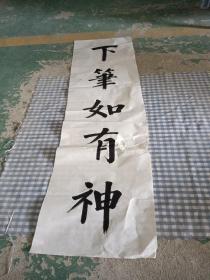 下筆如有神